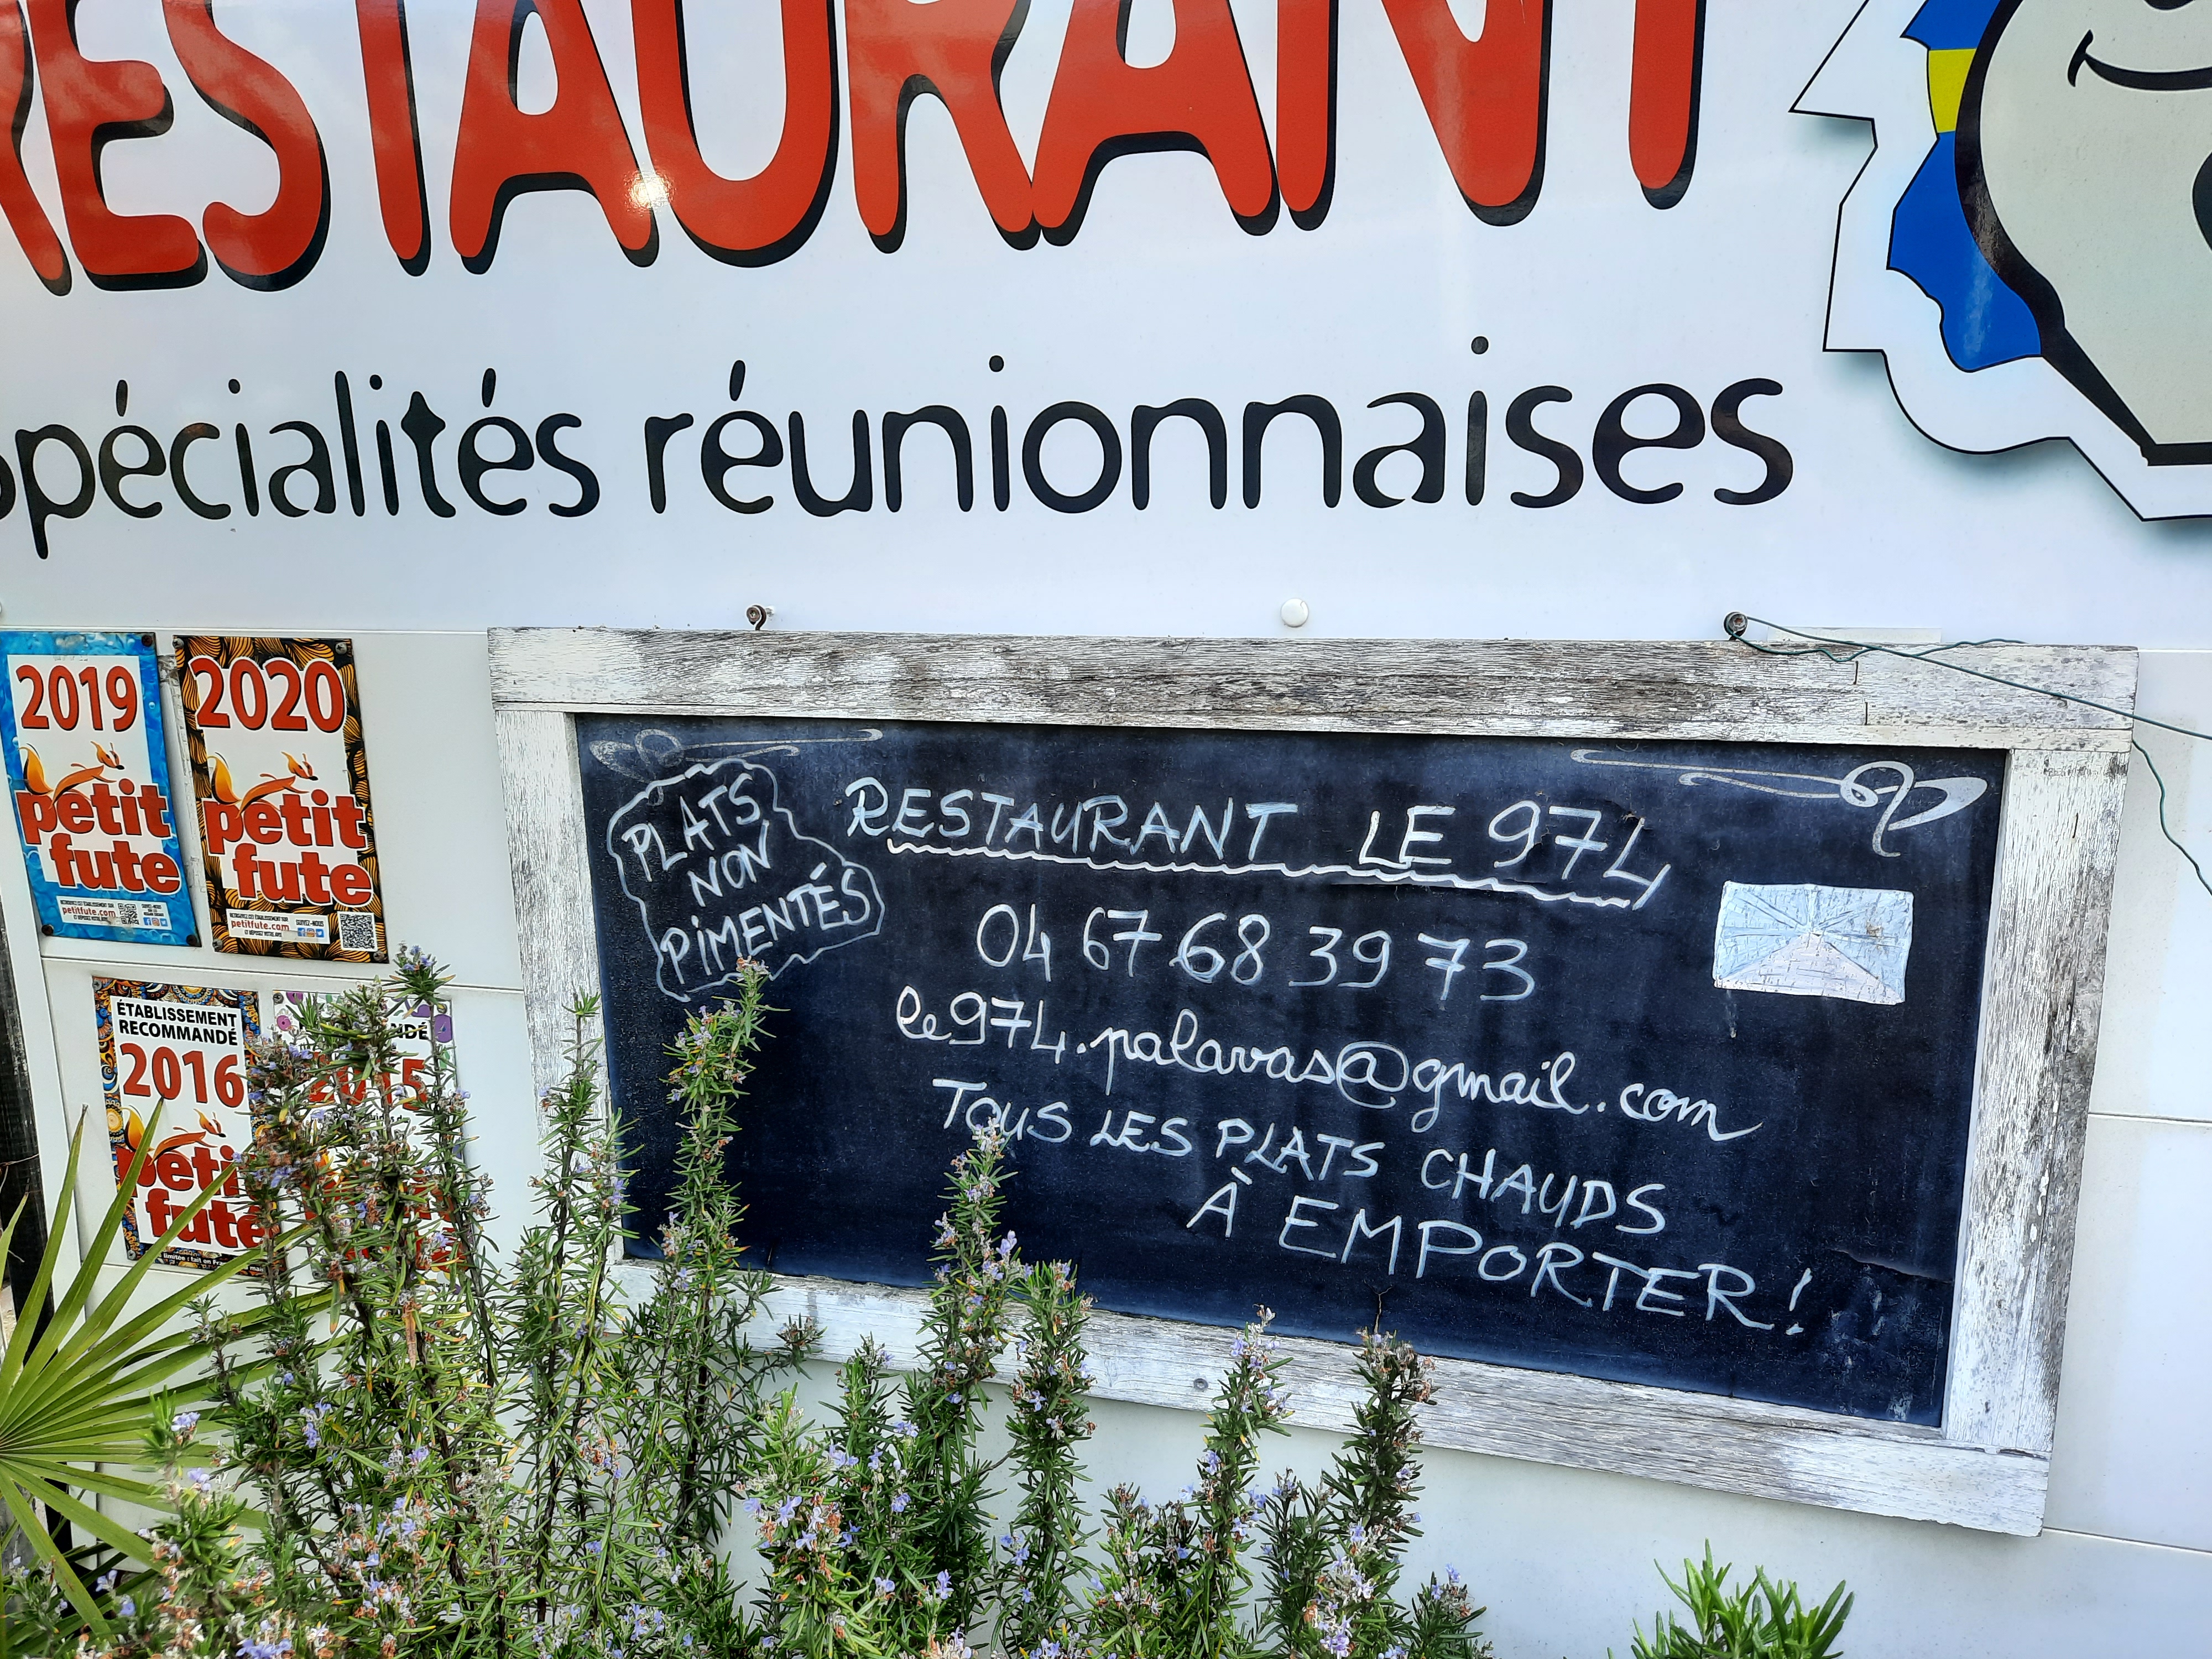 RESTAURANT
spécialités réunionnaises
2019
petit
fute
petitfute.com
2020
petit
fute
petitfute.com
ÉTABLISSEMENT
RECOMMANDÉ
2016
petit
fute
2015
PLATS
NON
PIMENTÉS
RESTAURANT LE 974
04 67 68 39 73
le974.palavas@gmail.com
TOUS LES PLATS CHAUDS
À EMPORTER!